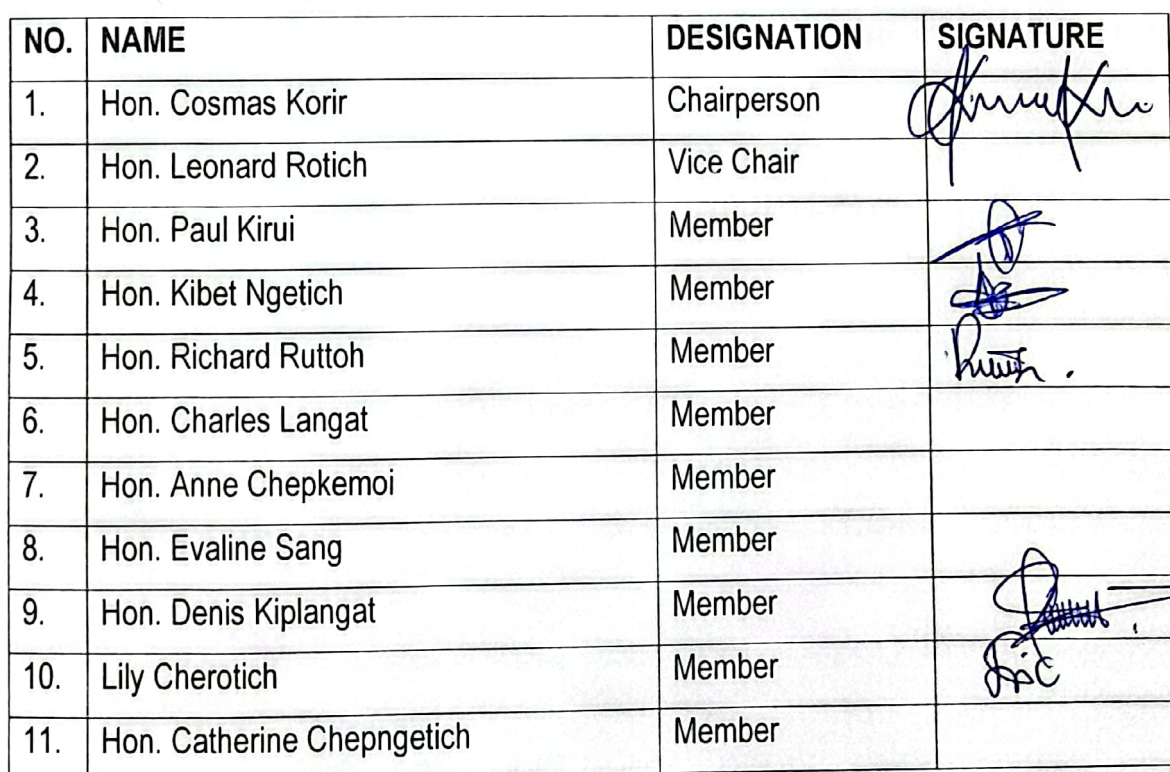 NO. NAME DESIGNATION SIGNATURE
1. Hon. Cosmas Korir Chairperson
2. Hon. Leonard Rotich Vice Chair
3. Hon. Paul Kirui Member
4. Hon. Kibet Ngetich Member
5. Hon. Richard Ruttoh Member
6. Hon. Charles Langat Member
7. Hon. Anne Chepkemoi Member
8. Hon. Evaline Sang Member
9. Hon. Denis Kiplangat Member
10. Lily Cherotich Member
11. Hon. Catherine Chepngetich Member